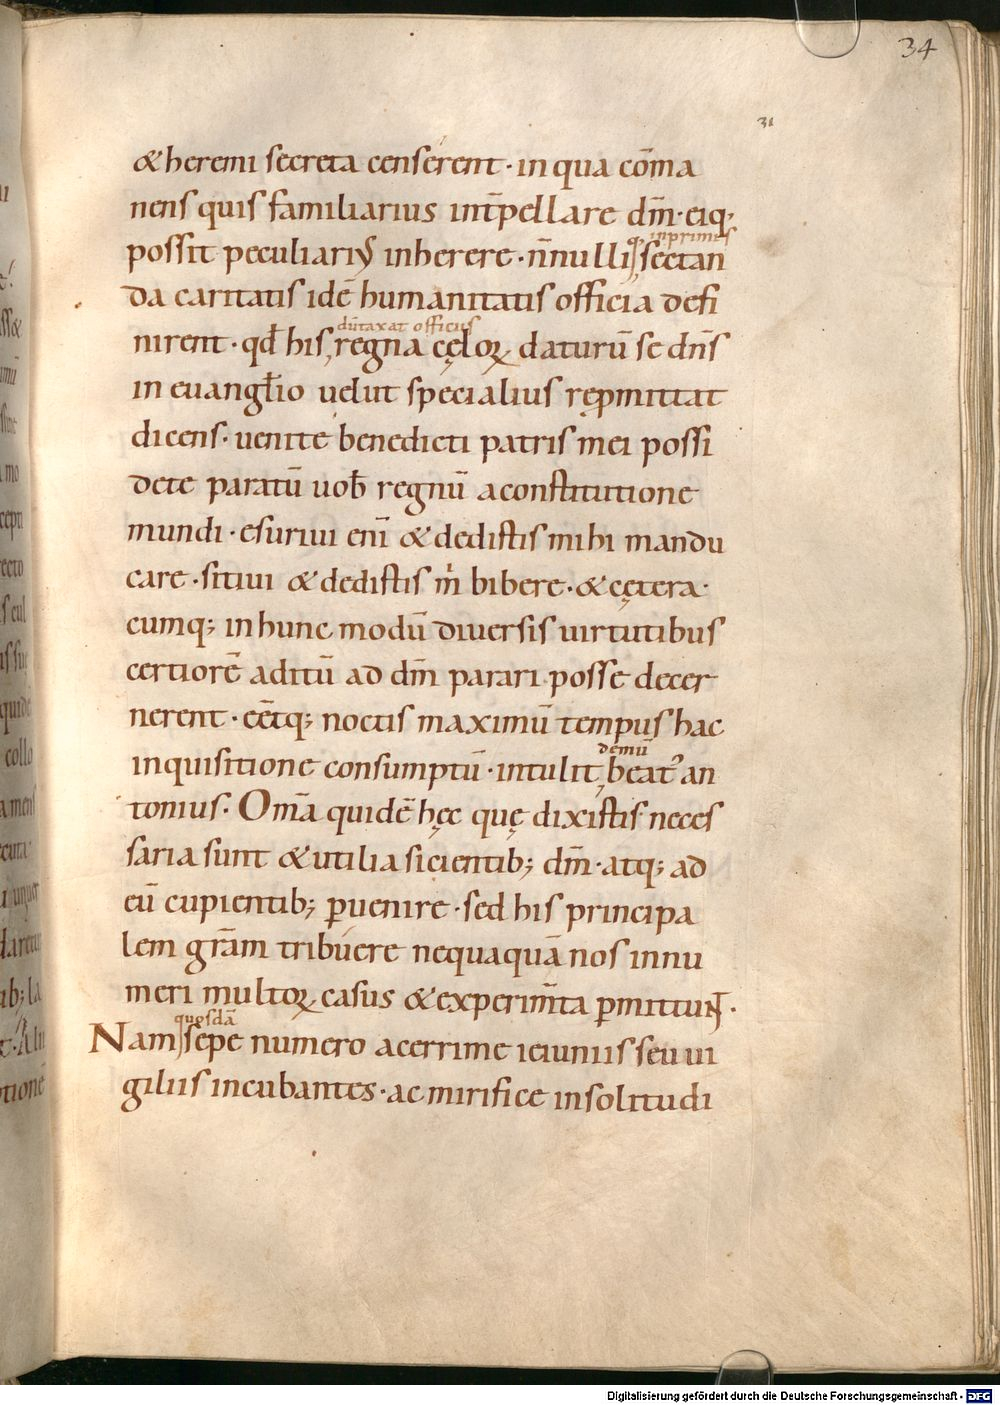 34
31
& heremi secreta censerent · in qua cōma
nens quis familiarius int̄pellare dm̄ · eiq;
inprimis
possit peculiariꝰ inherere · n̄nulli sectan
da caritatis idē humanitatis officia defi
dūtaxat officiis
nirent · qđ his, regna cęloꝝ daturū se dn̄s
in euangł̄io uelut specialius rep̱mittat
dicens · uenite benedicti patris mei possi
dete paratū uob̄ regnū a constitutione
mundi · esuriui eni̅ & dedistis mihi mandu
care · sitiui & dedistis m̄ bibere · & cętera ·
cumq; in hunc modū diuersis uirtutibus
certiorē aditū ad dm̄ parari posse decer
nerent · eētq; noctis maximū tempus hac
demū
inquisitione consumptū · intulit, beatꝰ an
tonius · Om̄a quidē hęc quę dixistis neces
saria sunt & utilia sicientib; dm̄ · atq; ad
eū cupientib; ꝑuenire · sed his principa
lem gr̄am tribuere nequaquā nos innu
meri multoꝝ casus & experim̄ta ꝑmittunt̄ ·
quosdā
Nam sepe numero acerrime ieiuniis seu ui
giliis incubantes · ac mirifice in solitudi
Digitalisierung gefördert durch die Deutsche Forschungsgemeinschaft - DFG